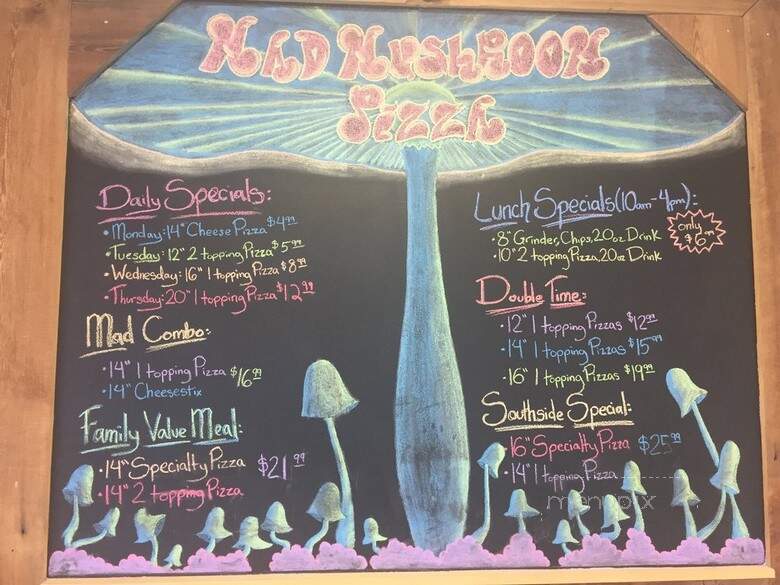 Mad Mushroom
Pizza
Daily Specials:
• Monday: 14" Cheese Pizza $4.99
• Tuesday: 12" 2 topping Pizza $5.99
• Wednesday: 16" 1 topping Pizza $8.99
• Thursday: 20" 1 topping Pizza $12.99
Mad Combo:
• 14" 1 topping Pizza $16.99
• 14" Cheesestix
Family Value Meal:
• 14" Specialty Pizza $21.99
• 14" 2 topping Pizza
Lunch Specials (10am-4pm):
• 8" Grinder, Chips, 20oz Drink
• 10" 2 topping Pizza, 20oz Drink
only
$6.99
Double Time:
• 12" 1 topping Pizzas $12.99
• 14" 1 topping Pizzas $15.99
• 16" 1 topping Pizzas $19.99
Southside Special:
• 16" Specialty Pizza $25.99
• 14" 1 topping Pizza
menupix